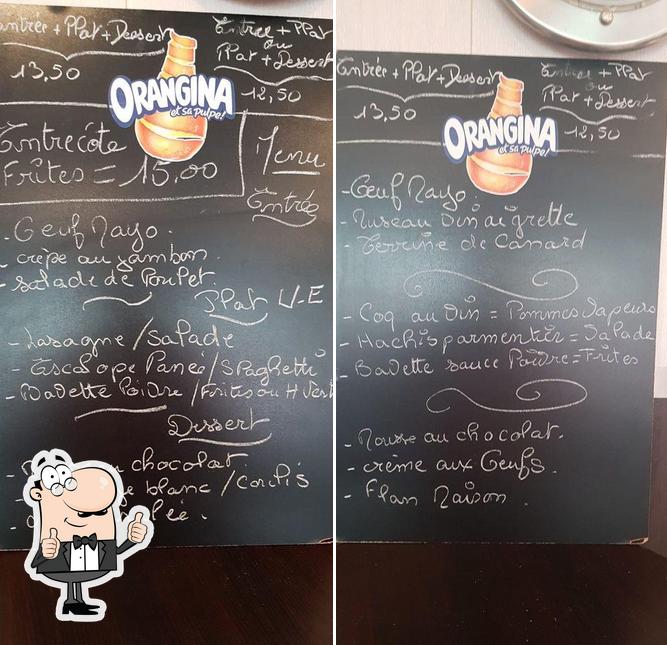 Entrée + PPat + Dessert
13,50
Entrée + PPat
ou
PPat + Dessert
12,50
ORANGINA
et sa pulpe!
Entrecôte
Frîtes = 15,00
Menu
Entrée
- Oeuf Mayo.
- crèpe au jambon.
- salade de Poulet.
PPat U-E
- Lasagne / Salade
- Escalope Panée / SPaghetti
- Bavette Poivre / Frites ou H Vert
Dessert
chocolat
blanc / Coulis
-
Entrée + PPat + Dessert
13,50
Entrée + PPat
ou
PPat + Dessert
12,50
ORANGINA
et sa pulpe!
- Oeuf Mayo.
- Museau Vinaigrette
- Terrine de Canard
- Coq au Vin = Pommes Vapeurs
- Hachis parmentier = Salade
- Bavette sauce Poivre = Frites
- Mousse au chocolat.
- crème aux Oeufs.
- Flan Maison.